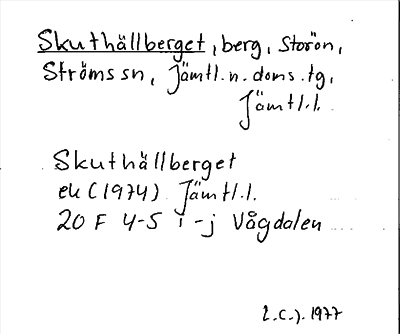 Skuthällberget, berg, Storön,
Ströms sn, Jämtl. n. doms. tg,
Jämtl. l.
Skuthällberget
ek (1974) Jämtl. l.
20 F 4-5 i-j Vågdalen
1977